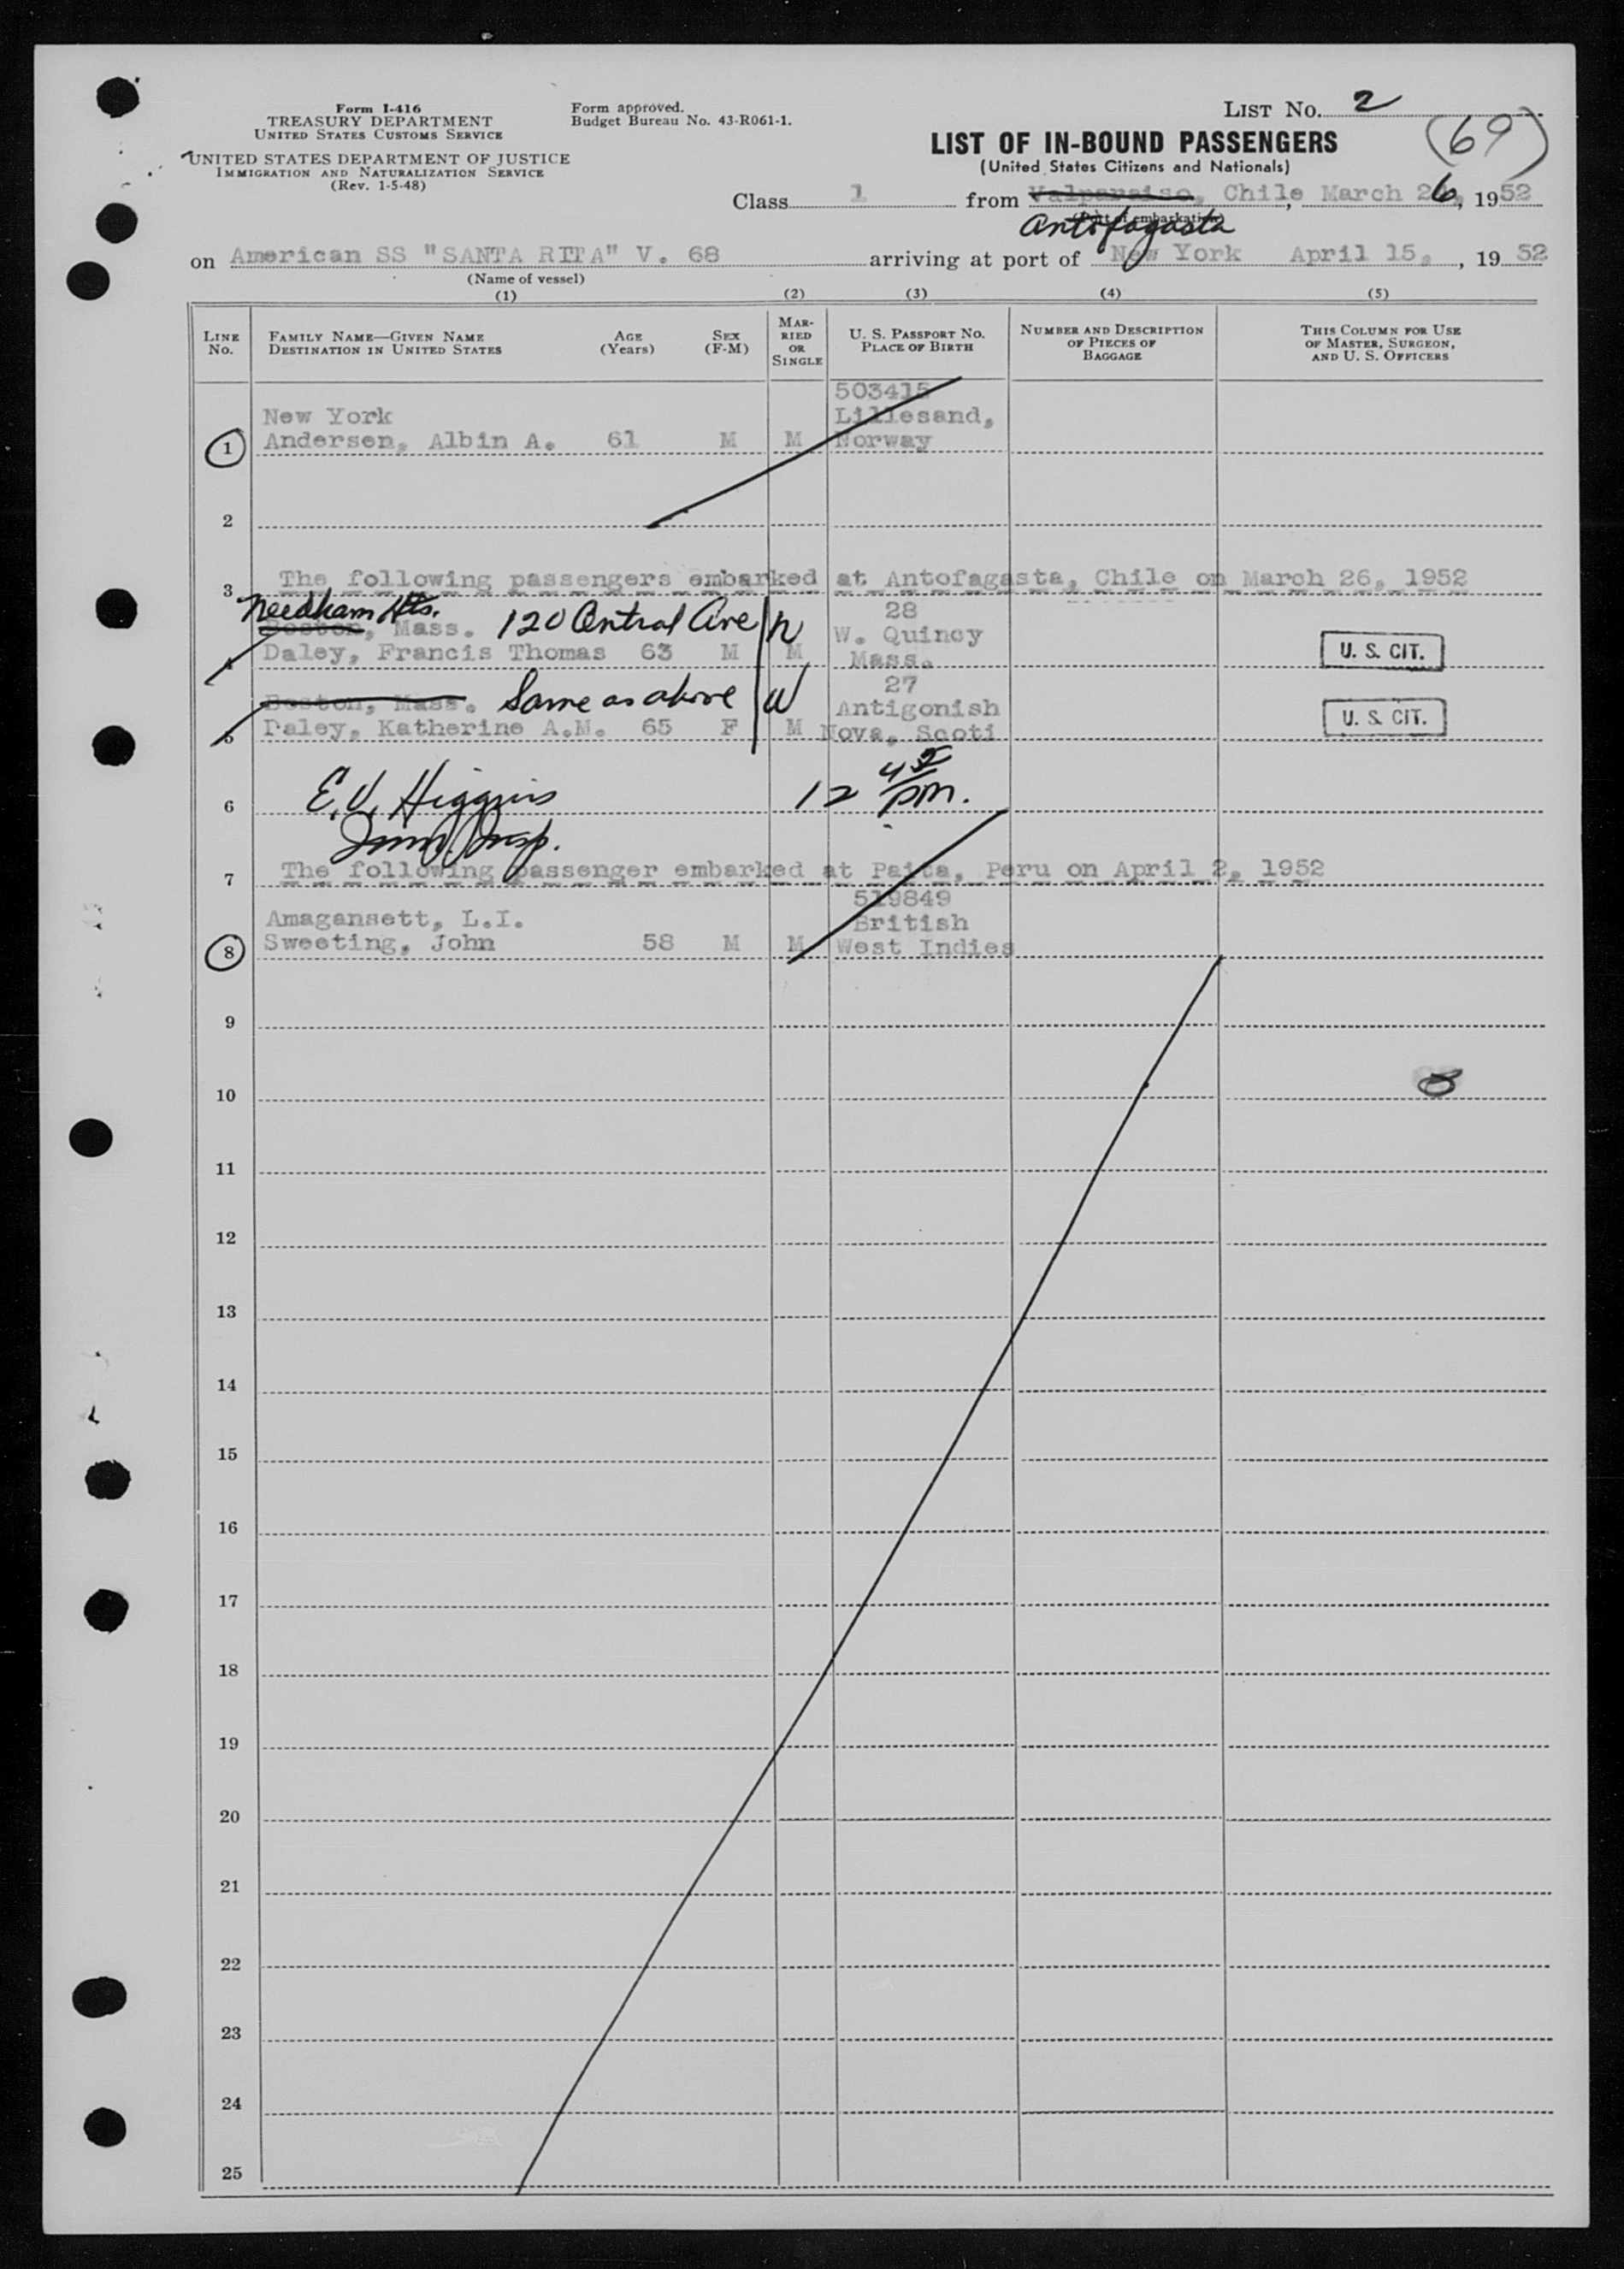 Form I-416
TREASURY DEPARTMENT
UNITED STATES CUSTOMS SERVICE
UNITED STATES DEPARTMENT OF JUSTICE
IMMIGRATION AND NATURALIZATION SERVICE
(Rev. 1-5-48)
Form approved.
Budget Bureau No. 43-R061-1.
LIST NO. 2
(69)
LIST OF IN-BOUND PASSENGERS
(United States Citizens and Nationals)
Class 1 from Valparaiso, Chile March 26, 1952
(Port of embarkation)
Antofagasta
on American SS "SANTA RITA" V. 68 arriving at port of New York April 15, , 19 52
(Name of vessel)
(1) (2) (3) (4) (5)
LINE NO.
FAMILY NAME—GIVEN NAME
DESTINATION IN UNITED STATES
AGE (Years)
SEX (F-M)
MARRIED OR SINGLE
U. S. PASSPORT NO.
PLACE OF BIRTH
NUMBER AND DESCRIPTION OF PIECES OF BAGGAGE
THIS COLUMN FOR USE OF MASTER, SURGEON, AND U. S. OFFICERS
503415
New York Lillesand,
1 Andersen, Albin A. 61 M M Norway
2
3 The following passengers embarked at Antofagasta, Chile on March 26, 1952
Needham Hts. 28
Boston, Mass. 120 Central Ave N W. Quincy
4 Daley, Francis Thomas 63 M M Mass. U. S. CIT.
27
Boston, Mass. Same as above W Antigonish
5 Daley, Katherine A.M. 65 F M Nova, Scoti U. S. CIT.
6 E.V. Higgins 12 45 pm.
Imm. Insp.
7 The following passenger embarked at Paita, Peru on April 2, 1952
519849
Amagansett, L.I. British
8 Sweeting, John 58 M M West Indies
9
10
11
12
13
14
15
16
17
18
19
20
21
22
23
24
25